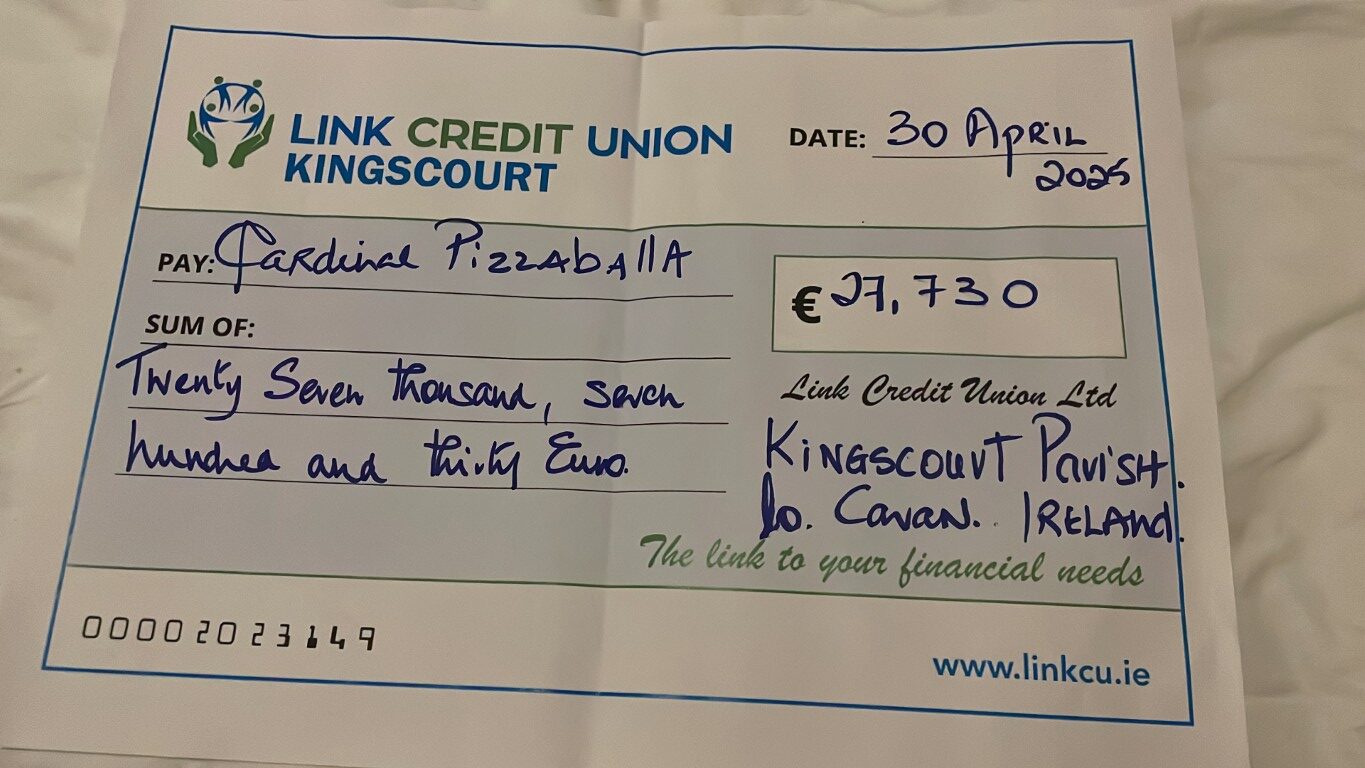 LINK CREDIT UNION
KINGSCOURT
DATE: 30 April
2025
PAY: Cardinal PizzabAllA
€ 27,730
SUM OF:
Twenty Seven thousand, seven
hundred and thirty Euro.
Link Credit Union Ltd
KINGSCOURT Parish.
Co. Cavan. IRELAND.
The link to your financial needs
00002023149
www.linkcu.ie